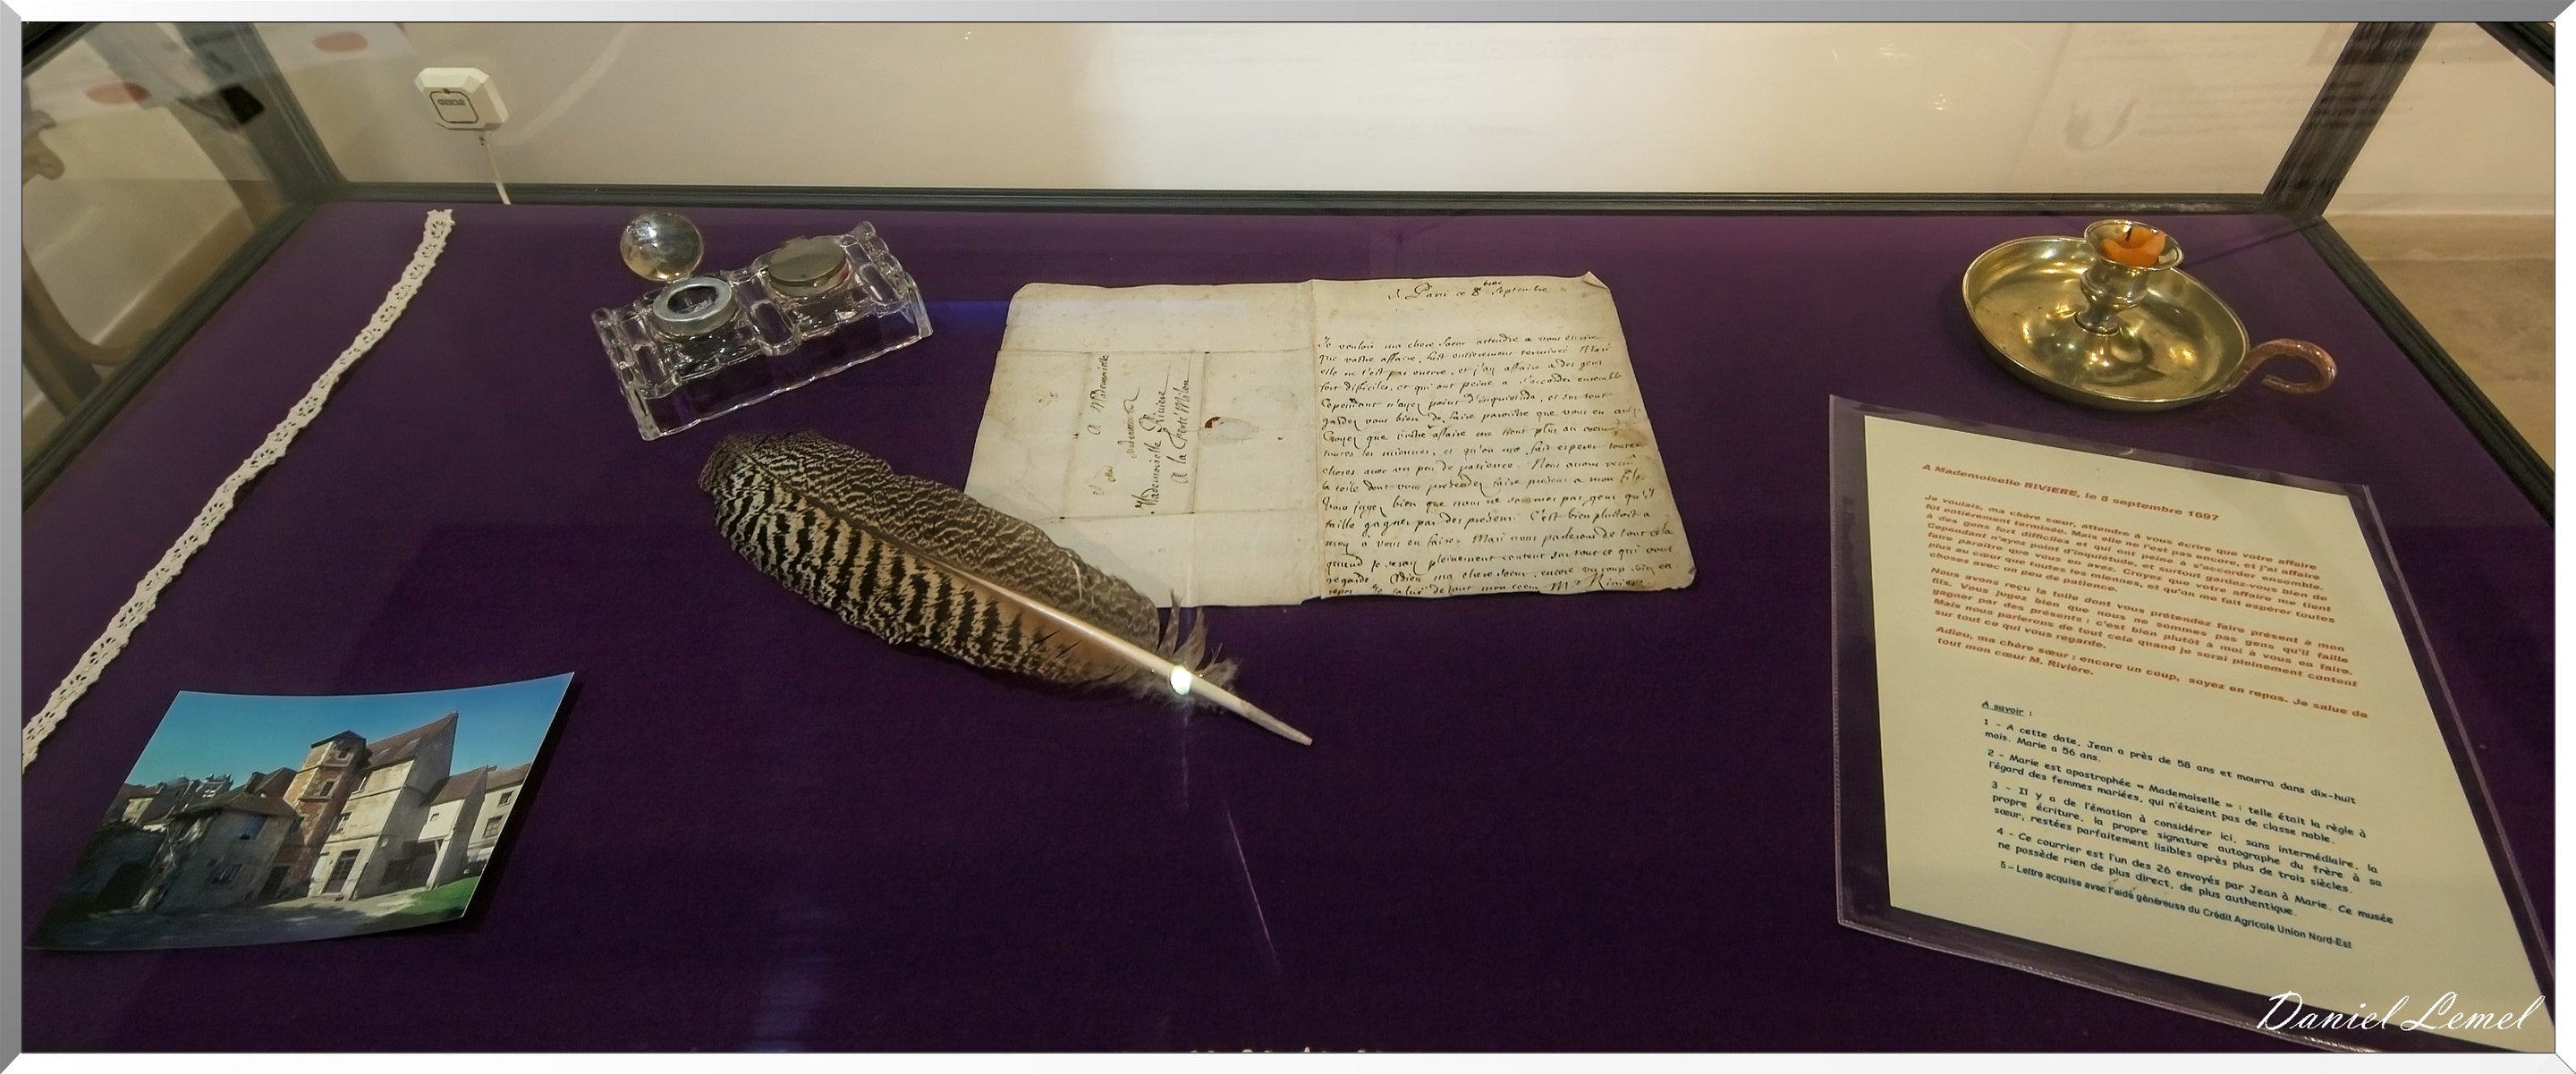 A Mademoiselle
Mademoiselle Riviere
A la Ferté Milon
A Paris ce 8 septembre
Je voulois ma chere soeur attendre a vous écrire
que vostre affaire fust entierement terminée Mais
elle ne l'est pas encore, et j'ay affaire a des gens
fort difficiles, et qui ont peine a s'accorder ensemble
Cependant n'ayez point d'inquietude, et sur tout
gardez vous bien de faire paroistre que vous en avez
Croyez que vostre affaire me tient plus au coeur
toutes les miennes, et qu'on me fait esperer toutes
choses avec un peu de patience. Nous avons receu
la toile dont vous pretendez faire present a mon fils.
Vous jugez bien que nous ne sommes pas gens qu'il
faille gagner par des presens. C'est bien plustost a
moy a vous en faire. Mais nous parlerons de tout cela
quand je serai pleinement content sur tout ce qui vous
regarde. Adieu ma chere soeur, encore un coup soiez en
repos Je salue de tout mon coeur Mr Riviere
A Mademoiselle RIVIERE, le 8 septembre 1697
Je voulais, ma chère sœur, attendre à vous écrire que votre affaire
fût entièrement terminée. Mais elle ne l'est pas encore, et j'ai affaire
à des gens fort difficiles et qui ont peine à s'accorder ensemble.
Cependant n'ayez point d'inquiétude, et surtout gardez-vous bien de
faire paraître que vous en avez. Croyez que votre affaire me tient
plus au cœur que toutes les miennes, et qu'on me fait espérer toutes
choses avec un peu de patience.
Nous avons reçu la toile dont vous prétendez faire présent à mon
fils. Vous jugez bien que nous ne sommes pas gens qu'il faille
gagner par des présents ; c'est bien plutôt à moi à vous en faire.
Mais nous parlerons de tout cela quand je serai pleinement content
sur tout ce qui vous regarde.
Adieu, ma chère sœur ; encore un coup, soyez en repos. Je salue de
tout mon cœur M. Rivière.
A savoir :
1 - A cette date, Jean a près de 58 ans et mourra dans dix-huit
mois. Marie a 56 ans.
2 - Marie est apostrophée « Mademoiselle » : telle était la règle à
l'égard des femmes mariées, qui n'étaient pas de classe noble.
3 - Il y a de l'émotion à considérer ici, sans intermédiaire, la
propre écriture, la propre signature autographe du frère à sa
sœur, restées parfaitement lisibles après plus de trois siècles.
4 - Ce courrier est l'un des 26 envoyés par Jean à Marie. Ce musée
ne possède rien de plus direct, de plus authentique.
5 - Lettre acquise avec l'aide généreuse du Crédit Agricole Union Nord-Est
Daniel Lemel